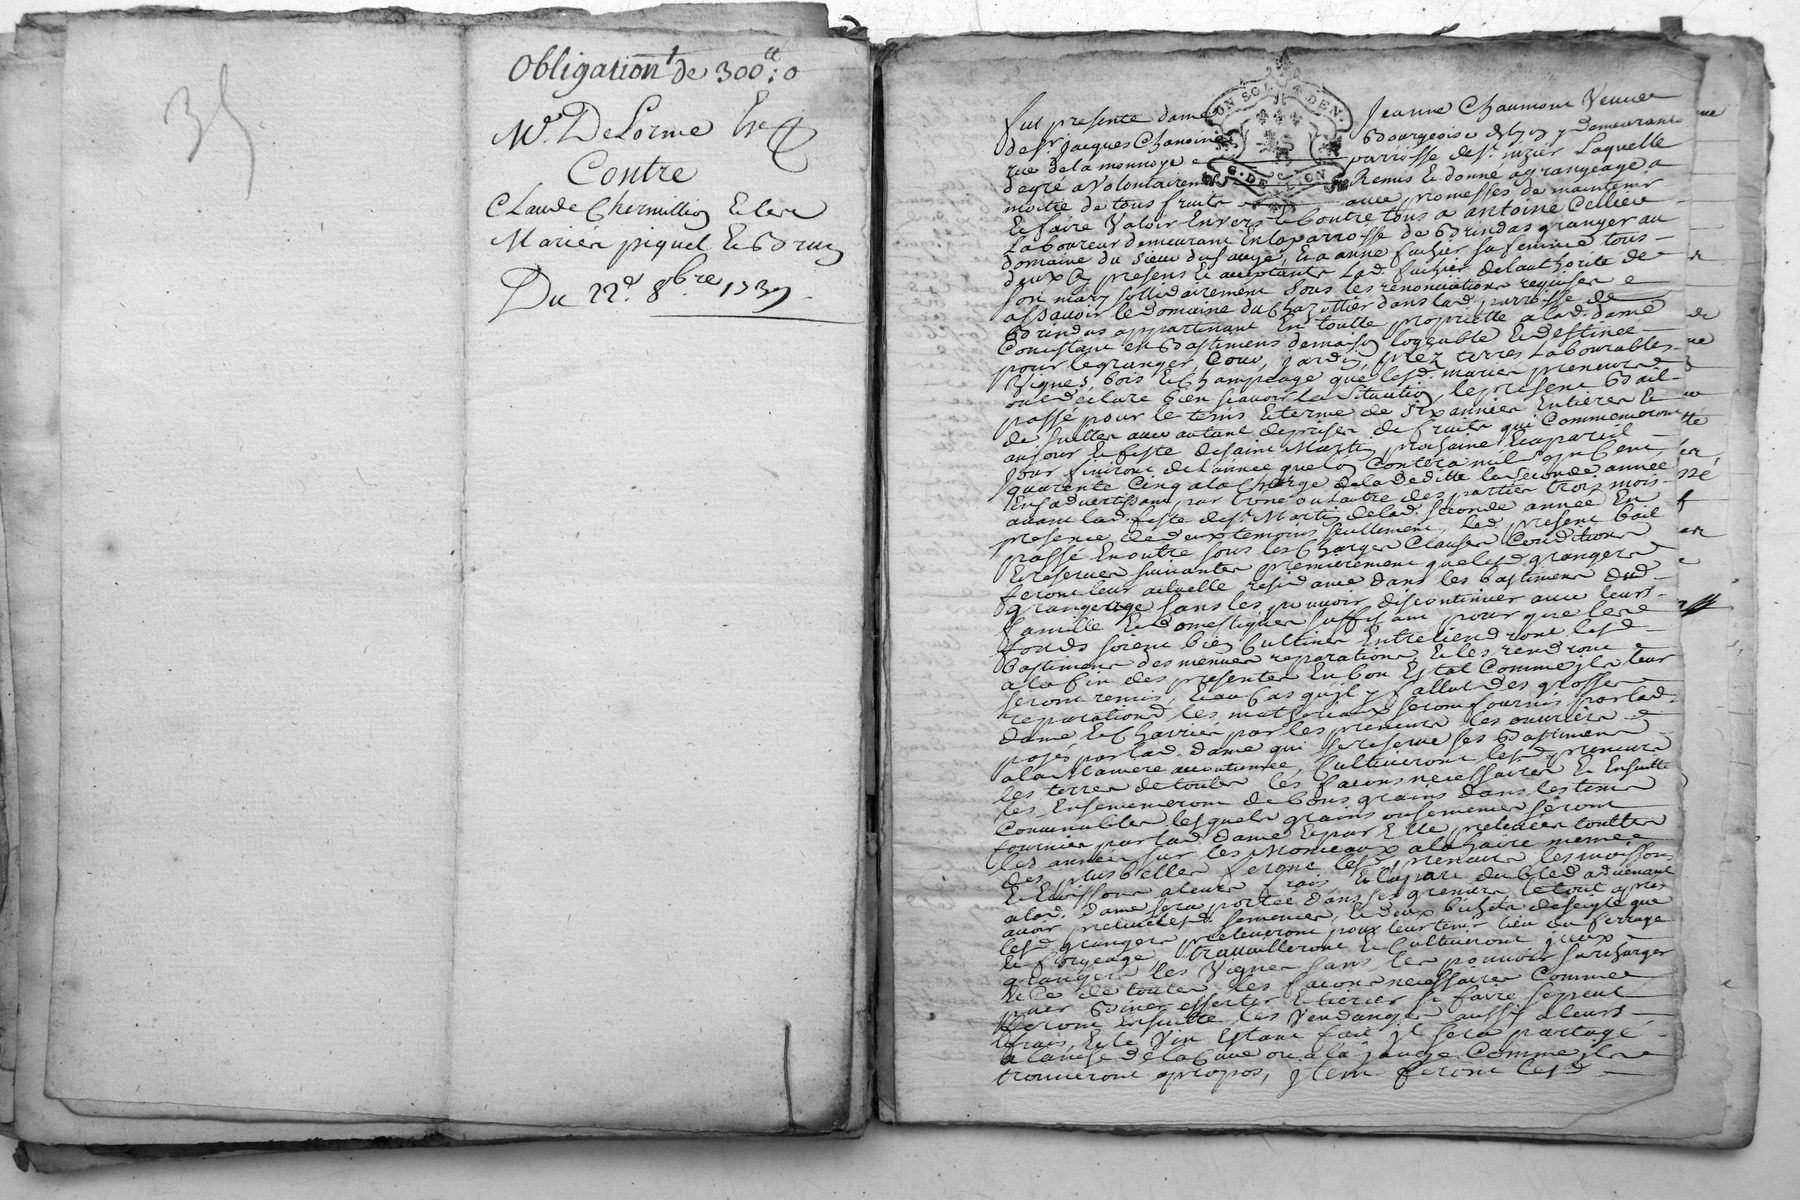 35
Obligation de 300ll: 0
Mr. DeLorme
Contre
Claude Chermillion
Mariée piquet
Du 22e. 8bre. 1739.
UN SOL 4 DEN.
G. DE LION
fut presente dame Jeanne Chaumont Veuve
de Sr Jacques Bourgeoise de lyon y demeurante
rue de la monnoye parroisse de St nizier Laquelle
de gré a Volontairement Remis & donné a grangeage a
moitié de tous fruits avec promesses de maintenir
& faire Valoir Envers & Contre tous a antoine Cellier
Laboureur demeurant En la parroisse de Brindas granger au
domaine du Sieur & a anne sa femme tous
deux presens & acceptants Lad. de lauthorité de
son mary sollidairement sous les renonciations requises
assavoir le domaine du dans lad. parroisse de
Brindas appartenant En toutte proprietté a lad. dame
Consistant en Bastimens de maison logeable & destinée
pour le granger, Cour, Jardin, prez terres Labourables
Vignes, bois & Champeage que lesd. mariés preneurs
ont declaré bien sçavoir la Situation, le present Bail
passé pour le tems & terme de six années Entieres &
de suitte avec autant de prises de fruits qui Commenceront
au jour & feste de saint Martin prochaine & a pareil
jour finiront de Lannée que lon Contera mil sept Cent
quarente Cinq a la Charge de la Deditte la Seconde année
En sadvertissant par Lune ou Lautre des parties trois mois
avant lad. feste de St. Martin de lad. Seconde année En
presence de deux temoins seullement, Led. present bail
passé En outre sous les Charges Clauses Conditions
& reserves suivantes premierement que lesd. grangers
feront leur actuelle residance Dans les bastimens dud.
grangeage sans les pouvoir discontinuer avec leurs
famille & domestiques suffisant pour que les
fonds soient bien Cultivés Entretiendront lesd.
Bastimens des menues reparations & les rendront
a la fin des presentes En bon Estat Comme jls leur
seront remis, & au Cas qu'jl y fallut des grosses
reparations les matheriaux seront fournis par lad.
dame & Charriés par les preneurs les ouvriers
payés par lad. dame qui se reserve ses Bastimens
a la Maniere accoutumée, Cultiveront lesd. preneurs
les terres de toutes les façons necessaires & Ensuitte
les Ensemenceront de bons grains dans les tems
Convenables lesquels grains ou semences seront
fournies par lad. Dame & par Elle prelevées touttes
les années sur les Monceaux a lhaire memes
des plus belles feront lesd. preneurs les moissons
a leurs frais & la part du bled advenant
a lad. Dame sera portée dans ses greniers le tout apres
avoir prelevé lesd. semences, & deux bichets de seigle que
lesd. grangers preleveront pour leur tenir lieu du ferrage
& forgeage, travailleront & Cultiveront jceux
grangers les Vignes sans les pouvoir surcharger
& Ce de toutes les façons necessaires Comme
Biner & tiercer si faire se peut
feront Ensuitte les Vendanges aussy a leurs
frais, & le Vin Estant fait jl sera partagé
a la de la Cuve ou a la jauge Comme jls
trouveront apropos, jtem feront lesd.